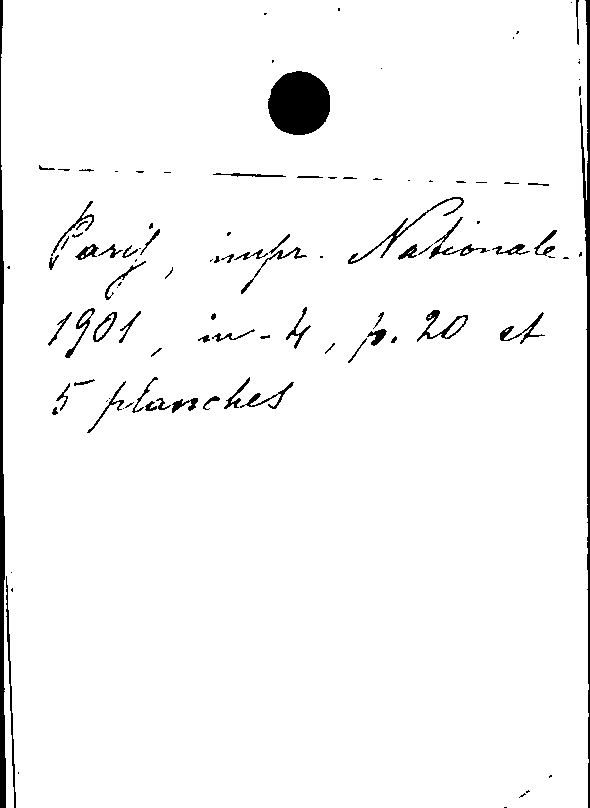 Paris, impr. Nationale.
1901, in-4, p. 20 et
5 planches